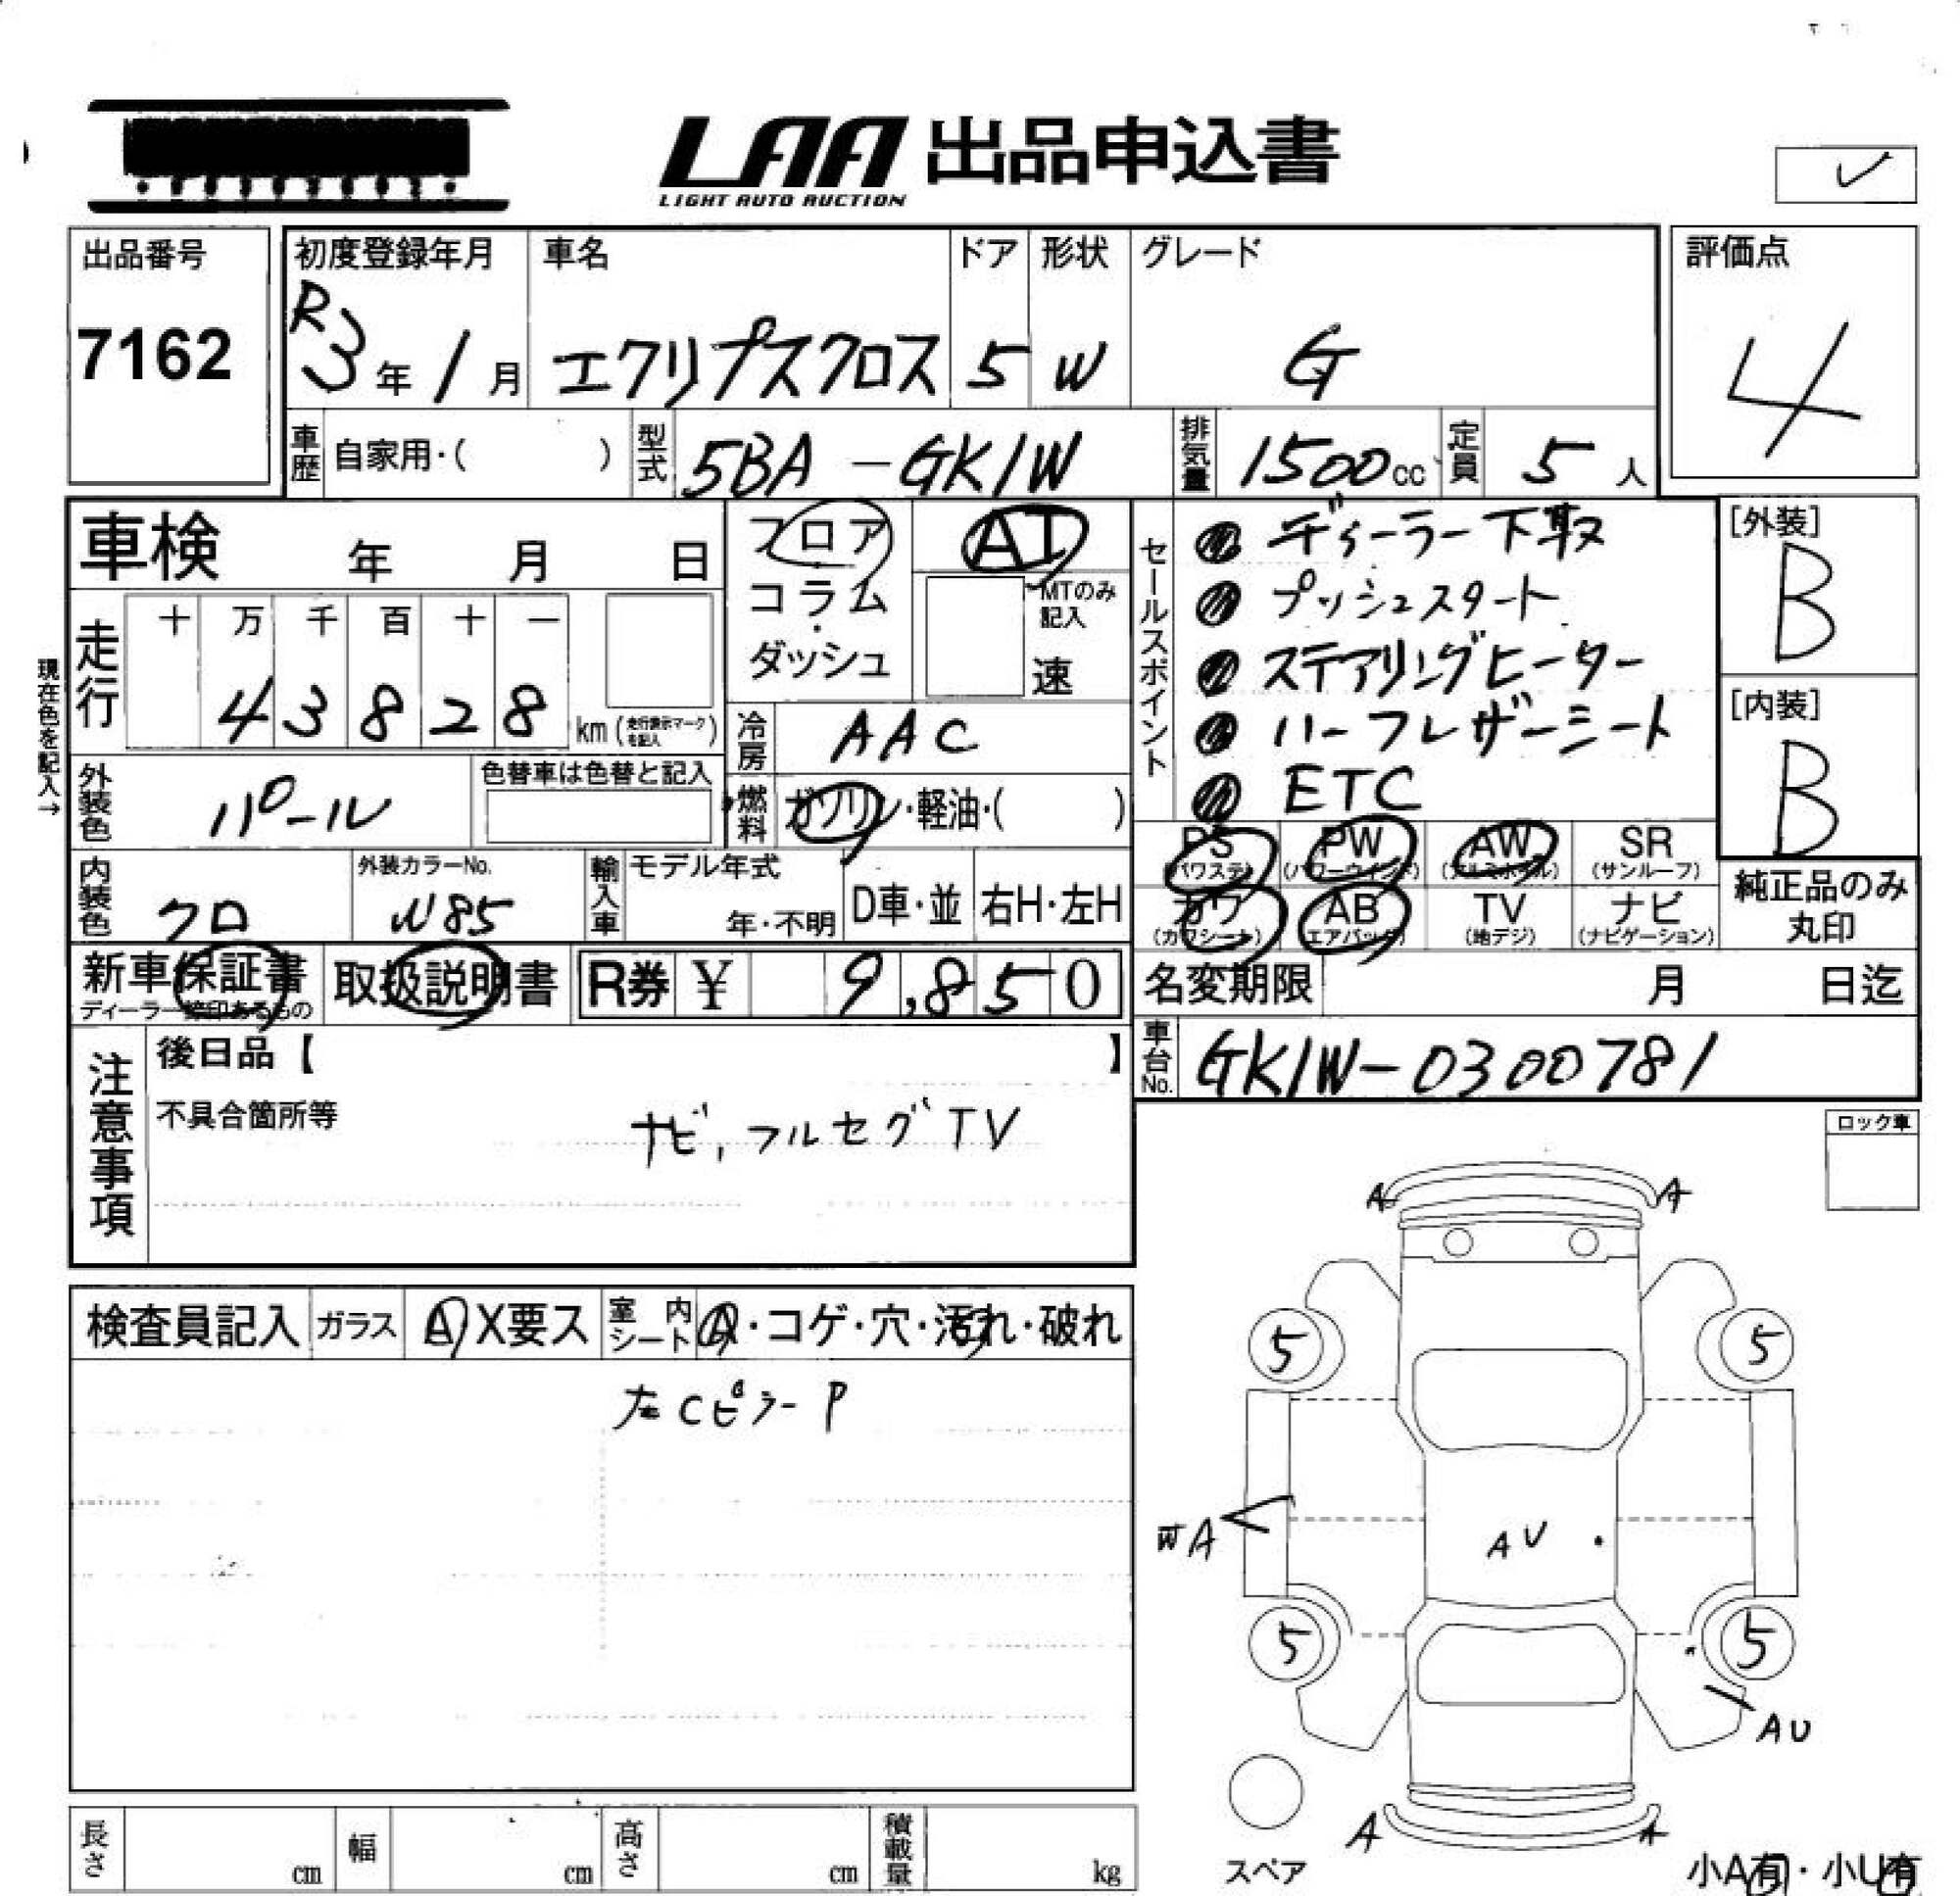 LAA 出品申込書
LIGHT AUTO AUCTION
出品番号
7162
初度登録年月
R3年1月
車名
エクリプスクロス
ドア
5
形状
W
グレード
G
評価点
4
車歴 自家用・( )
型式 5BA-GK1W
排気量 1500cc
定員 5人
車検 年 月 日
フロア
コラム
・
ダッシュ
AT
MTのみ記入
速
現在色を記入→
走行
十 万 千 百 十 一
4 3 8 2 8 km (走行表示マークを記入)
冷房 AAC
外装色 パール
色替車は色替と記入
燃料 ガソリン・軽油・( )
セールスポイント
ディーラー下取
プッシュスタート
ステアリングヒーター
ハーフレザーシート
ETC
[外装]
B
[内装]
B
PS (パワステ)
PW (パワーウインド)
AW (アルミホイル)
SR (サンルーフ)
カワ (カワシート)
AB (エアバック)
TV (地デジ)
ナビ (ナビゲーション)
純正品のみ
丸印
内装色 クロ
外装カラーNo.
W85
輸入車
モデル年式
年・不明
D車・並
右H・左H
新車保証書
取扱説明書
R券 ¥ 9,850
名変期限 月 日迄
車台No. GK1W-0300781
注意事項
後日品【 】
不具合箇所等
ナビ,フルセグTV
ロック車
検査員記入
ガラス A X要ス
室内シート A・コゲ・穴・汚れ・破れ
左CピラーP
A A
5 5
A
AU
5 5
AU
A A
スペア
小A有・小U有
長さ cm
幅 cm
高さ cm
積載量 kg